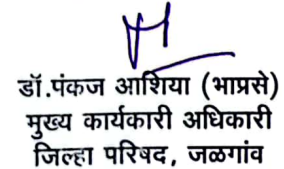 डॉ.पंकज आशिया (भाप्रसे)
मुख्य कार्यकारी अधिकारी
जिल्हा परिषद, जळगांव